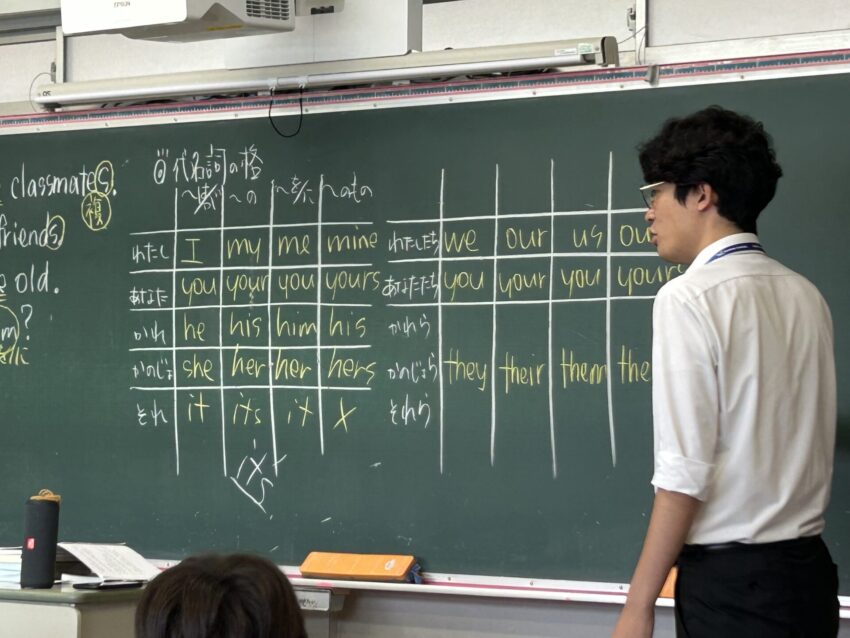 EPSON
classmates.
複
friends
old.
m?
◎代名詞の格
〜は/が 〜の 〜を/に 〜のもの
わたし I my me mine
あなた you your you yours
かれ he his him his
かのじょ she her her hers
それ it its it x
it's
わたしたち we our us ou
あなたたち you your you yours
かれら
かのじょら they their them the
それら
JBL